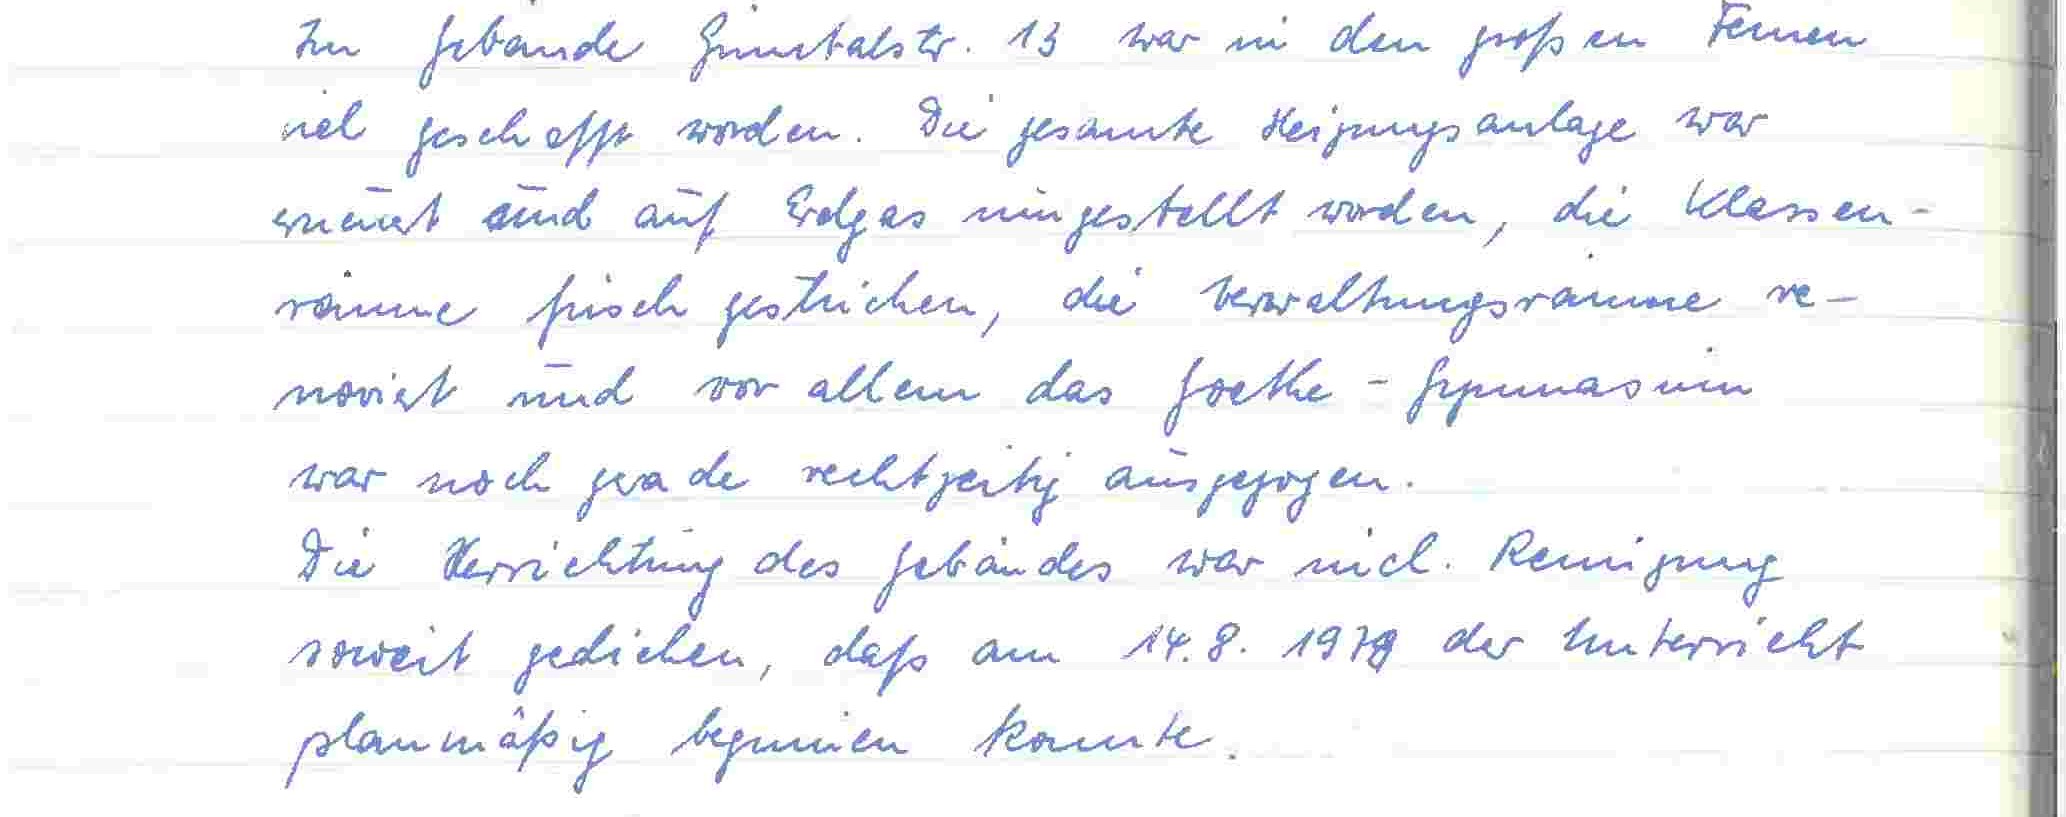 Im Gebäude Grünstalstr. 13 war in den großen Ferien
viel geschafft worden. Die gesamte Heizungsanlage war
erneuert und auf Erdgas umgestellt worden, die Klassen-
räume frisch gestrichen, die Verwaltungsräume re-
noviert und vor allem das Goethe-Gymnasium
war noch gerade rechtzeitig ausgezogen.
Die Herrichtung des Gebäudes war incl. Reinigung
soweit gediehen, daß am 14.8. 1979 der Unterricht
planmäßig beginnen konnte.